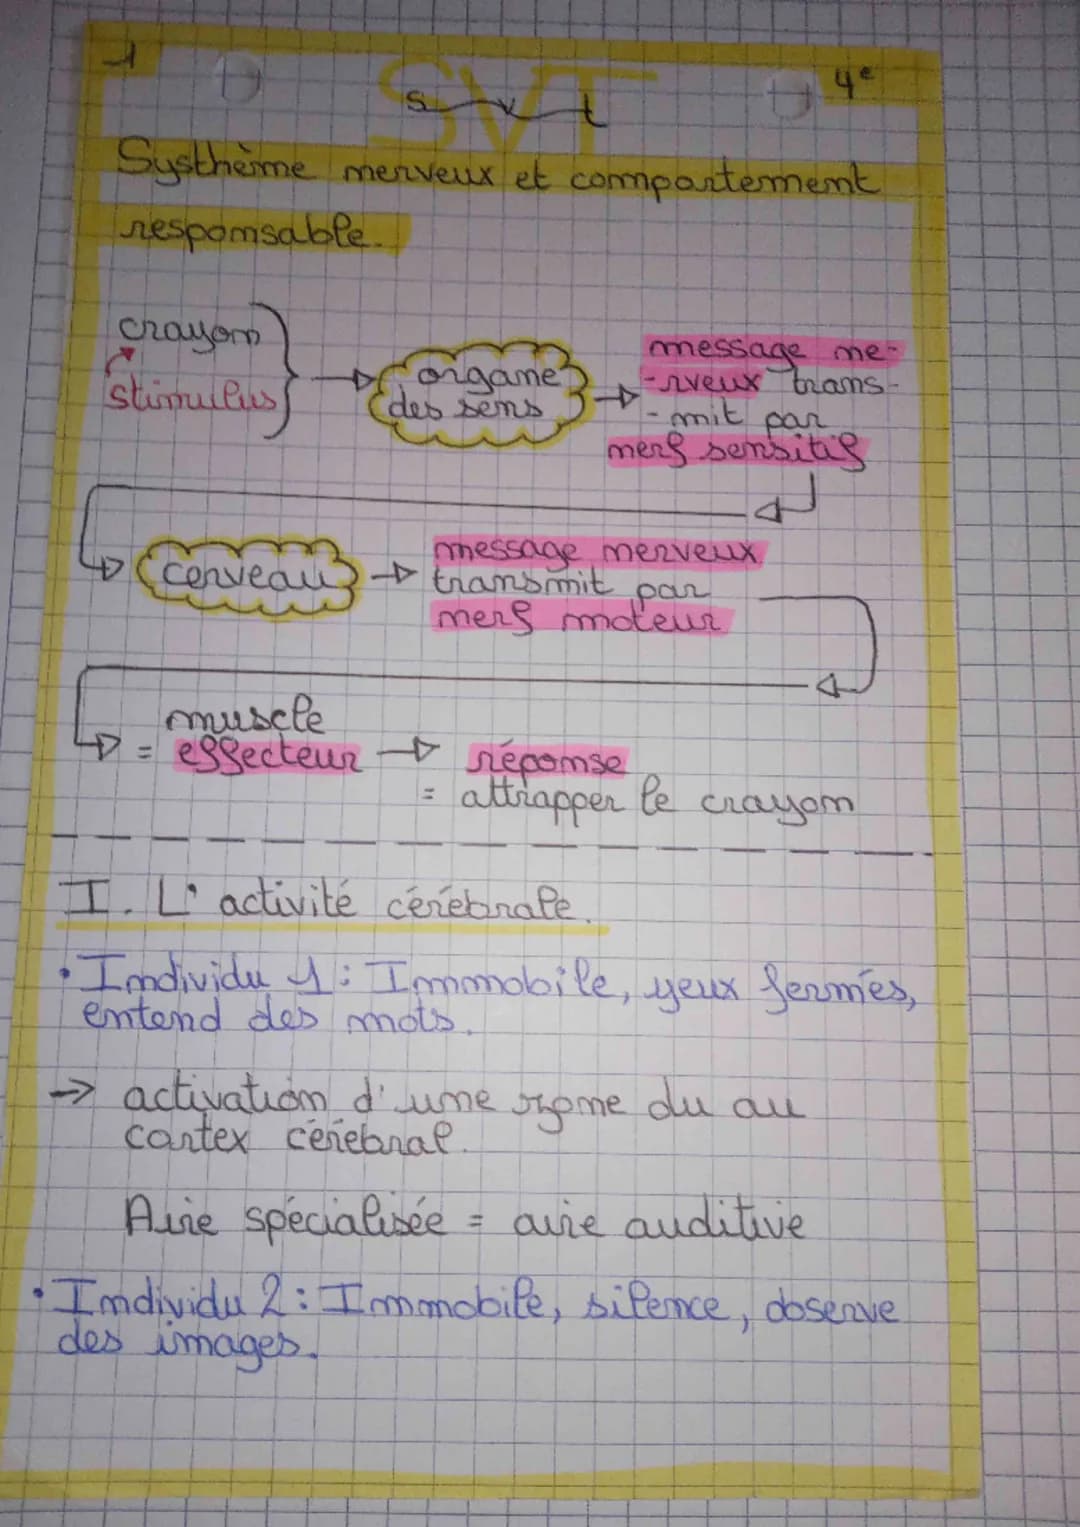 1
4e
SVT
s v t
Systhème nerveux et comportement
responsable.
crayon
stimulus
organe
des sens
message ne-
-rveux trans-
-mit par
nerf sensitif
cerveau
message nerveux
transmit par
nerf moteur
muscle
= effecteur
réponse
= attrapper le crayon
I. L'activité cérébrale.
• Individu 1 : Immobile, yeux fermés,
entend des mots.
→ activation d'une zone du au
cortex cérébral.
Aire spécialisée = aire auditive
• Individu 2 : Immobile, silence, observe
des images.